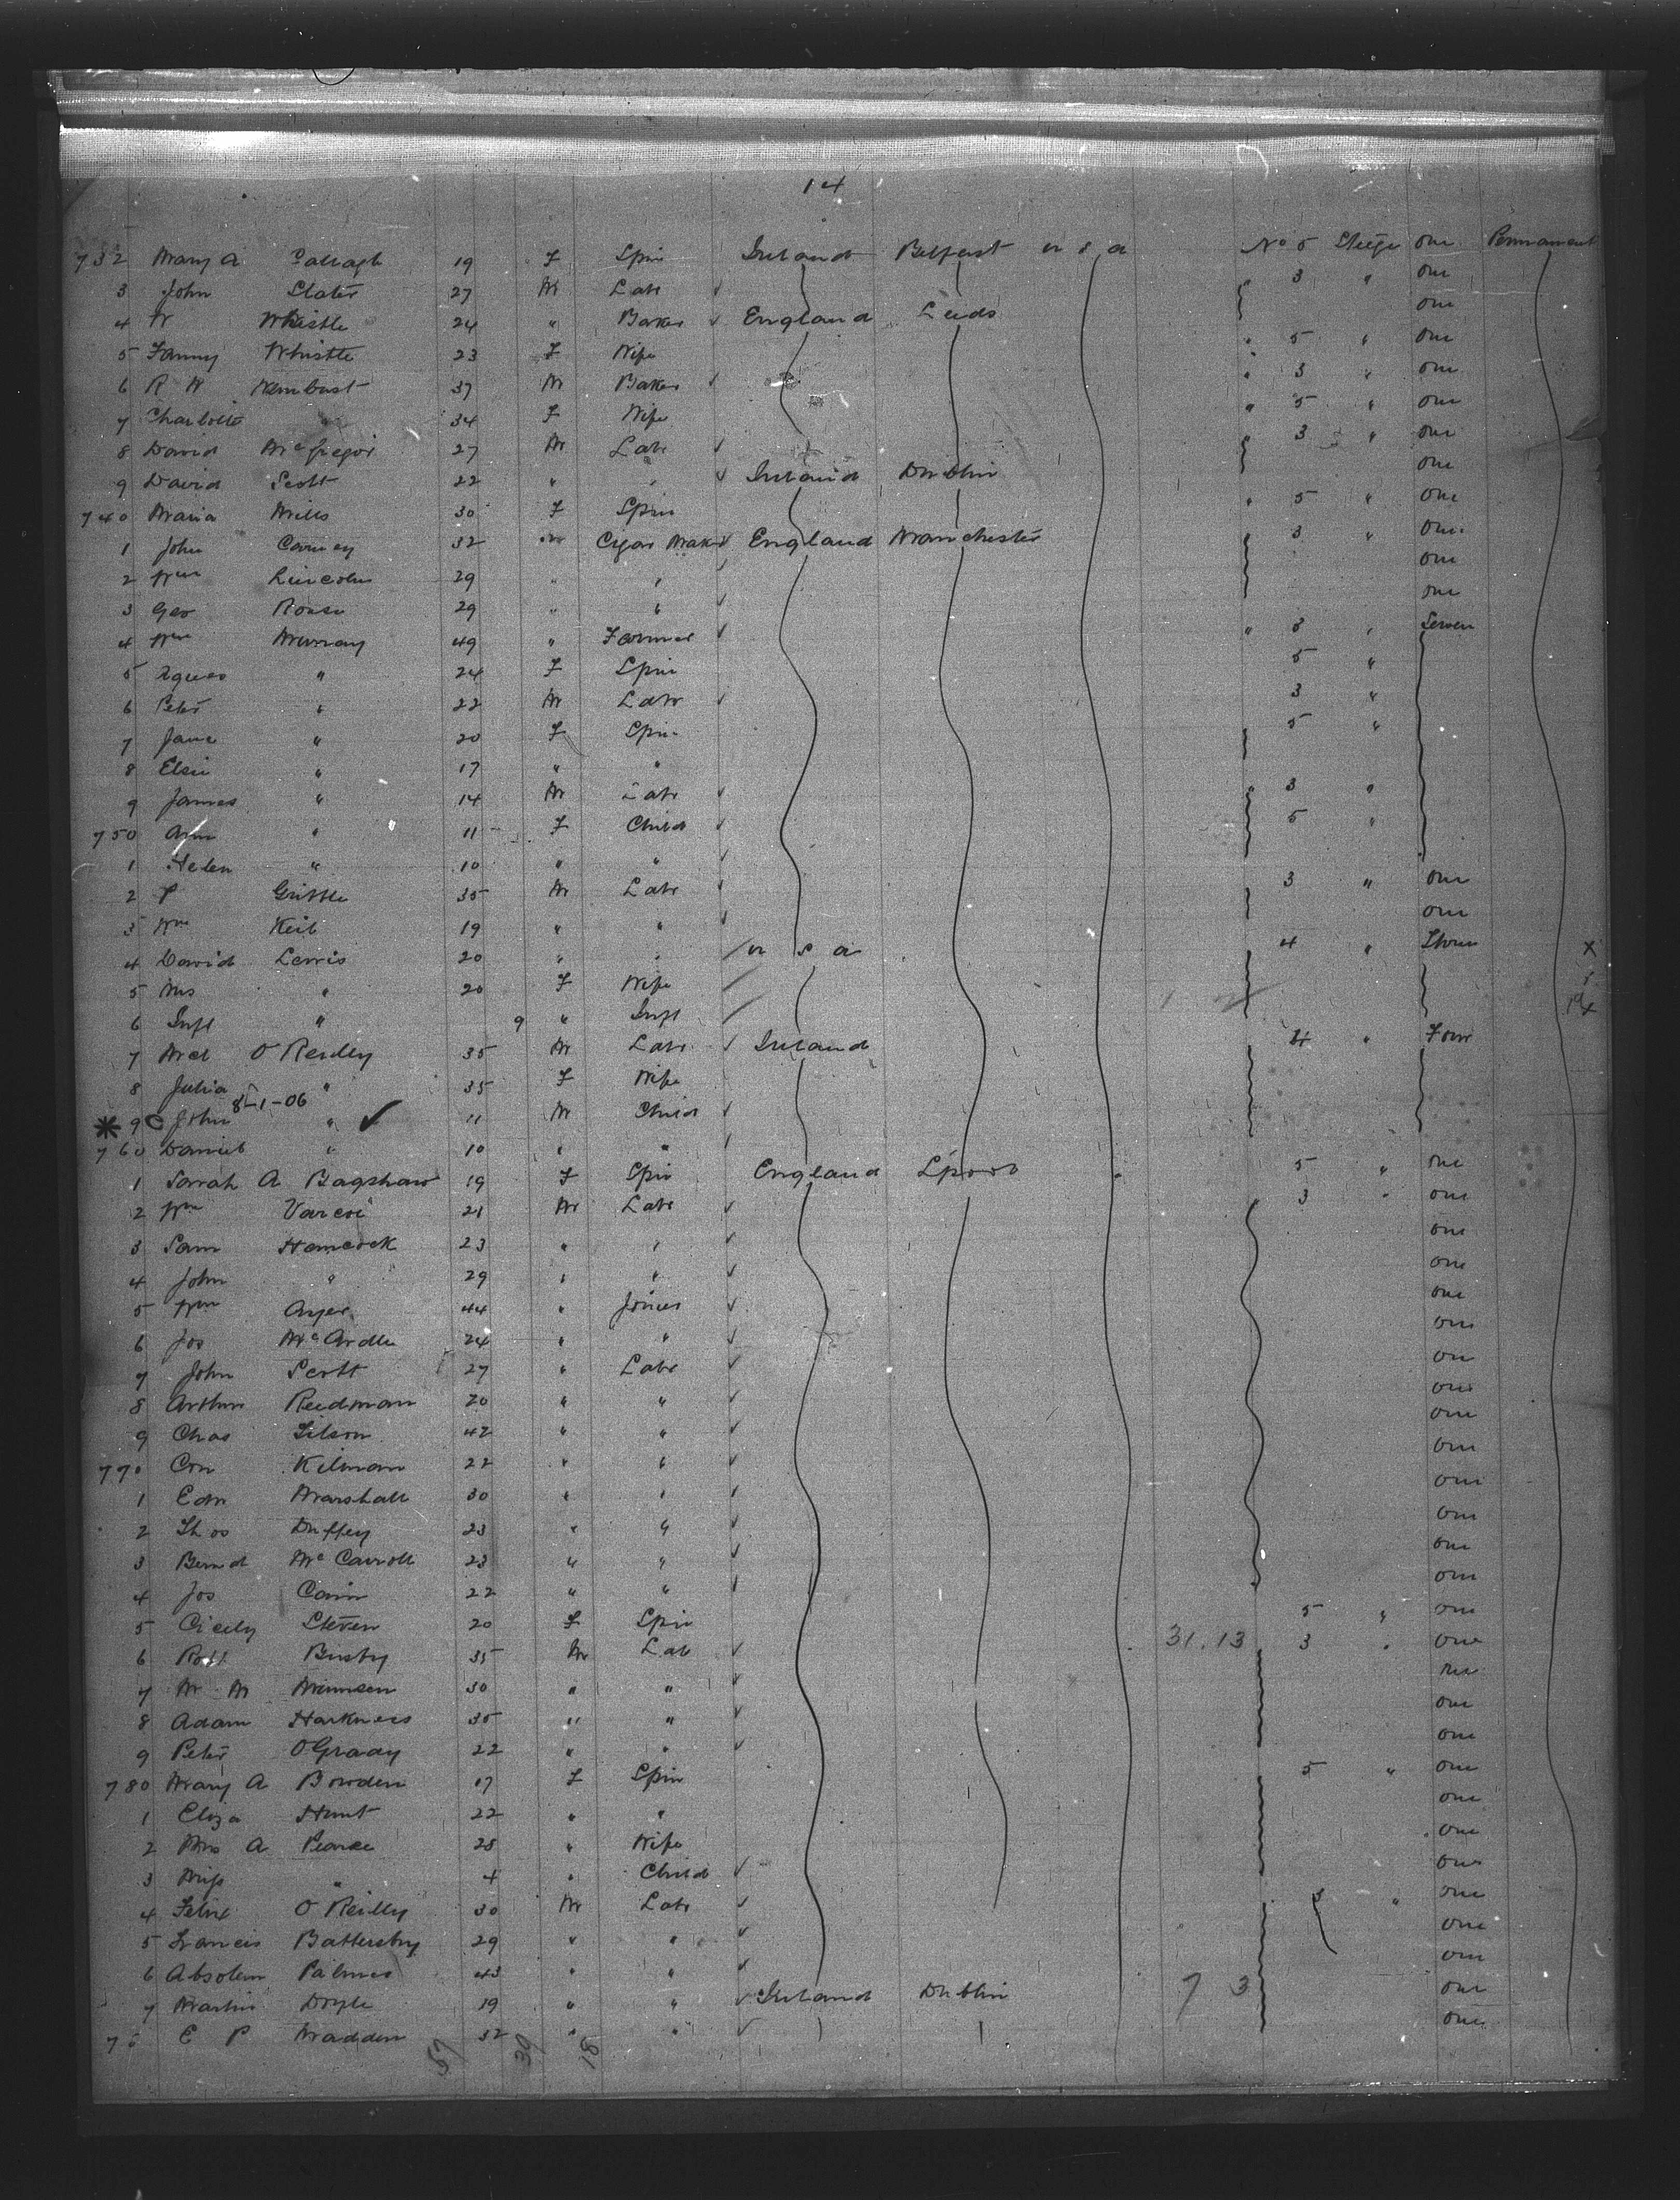 14
732 Mary A 19 F Spin Ireland Belfast U S A No 5 Steege one Permanent
3 John Slater 27 M Labr ✓ 3 " one
4 W Whistle 24 " Baker ✓ England Leeds one
5 Fanny Whistle 23 F Wife " 5 " one
6 R W 37 M Baker ✓ " 3 " one
7 Charlotte " 34 F Wife " 5 " one
8 David McGregor 27 M Labr ✓ 3 " one
9 David Scott 22 " " ✓ Ireland Dublin one
740 Maria Mills 30 F Spin " 5 " one
1 John Carney 32 M Cigar Maker ✓ England Manchester 3 " one
2 Wm Lincoln 29 " " ✓ one
3 Geo Rouse 29 " " ✓ one
4 Wm Murray 49 " Farmer ✓ " 3 " Seven
5 Agnes " 24 F Spin 5 "
6 Peter " 22 M Labr ✓ 3 "
7 Jane " 20 F Spin 5 "
8 Elsie " 17 " "
9 James " 14 M Labr ✓ " 3 "
750 Ann " 11 F Child ✓ 5 "
1 Helen " 10 " " ✓
2 P Gristle 35 M Labr ✓ 3 " one
3 Wm Keil 19 " " ✓ one
4 David Lewis 20 " " / U S A 4 " Three X
5 Mrs " 20 F Wife /
6 Inft " 9 " Inft /
7 Mcl O'Reilly 35 M Labr ✓ Ireland 4 " Four
8 Julia " 35 F Wife
8-1-06
* 9 C John " ✓ 11 M Child ✓
760 Daniel " 10 " " ✓
1 Sarah A Bagshaw 19 F Spin England L'pool " 5 " one
2 Wm Varcoe 21 M Labr ✓ " 3 " one
3 Sam Hancock 23 " " ✓ one
4 John " 29 " " ✓ one
5 Wm Ayer 44 " Joiner ✓ one
6 Jos McArdle 24 " " ✓ one
7 John Scott 27 " Labr ✓ one
8 Arthur Reedman 20 " " ✓ one
9 Chas 42 " " ✓ one
770 Con Kilman 22 " " ✓ one
1 Edw Marshall 30 " " ✓ one
2 Thos Duffey 23 " " ✓ one
3 Bernd McCarroll 23 " " ✓ one
4 Jos Cain 22 " " ✓ one
5 Cicely Steven 20 F Spin 5 " one
6 Robt Busby 35 M Lab ✓ 31.13 3 " one
7 M M 30 " " ✓ one
8 Adam Harkness 35 " " ✓ one
9 Peter O'Grady 22 " " ✓ one
780 Mary A Bowden 17 F Spin 5 " one
1 Eliza Hunt 22 " " one
2 Mrs A Pearce 28 " Wife one
3 Miss " 4 " Child ✓ one
4 Felix O'Reilly 30 M Labr ✓ 3 " one
5 Francis Battersby 29 " " ✓ one
6 Absolem Palmer 43 " " ✓ one
7 Martin Doyle 19 " " ✓ Ireland Dublin 7 3 one
78 E P Madden 32 " " ✓ one
57 39 18